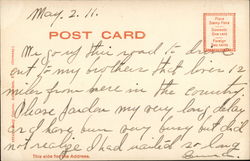 May. 2. 11.
POST CARD
Place
Stamp Here
Domestic
One cent
Foreign
Two cents
We go up this road to drive
out to my brothers that lives 12
miles from here in the country.
Please pardon my very long delay
as I have been very busy but did
not realize I had waited so long
This side for the Address.